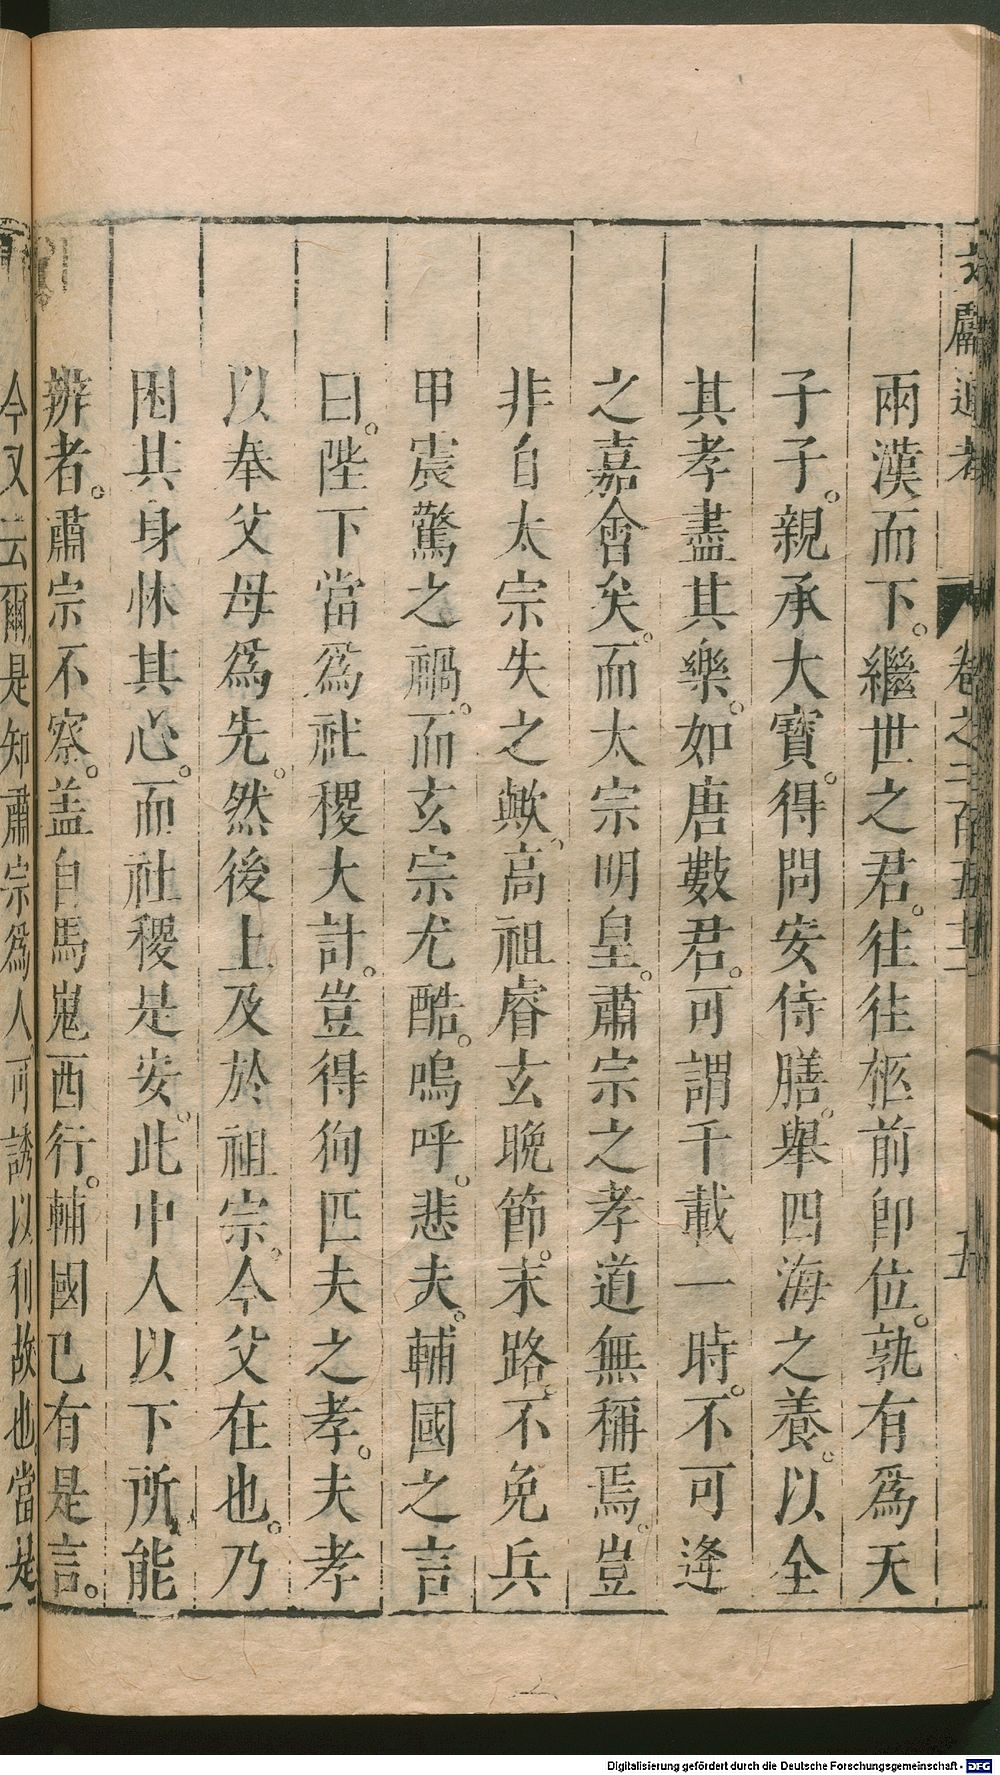 兩漢而下。繼世之君。往往柩前卽位。孰有爲天
子子。親承大寶。得問安侍膳。舉四海之養。以全
其孝盡其樂。如唐數君。可謂千載一時。不可逢
之嘉會矣。而太宗明皇。肅宗之孝道無稱焉。豈
非自太宗失之歟。高祖睿玄晚節。末路。不免兵
甲震驚之禍。而玄宗尤酷。嗚呼。悲夫。輔國之言
曰。陛下當爲社稷大計。豈得徇匹夫之孝。夫孝
以奉父母爲先。然後上及於祖宗。今父在也。乃
困其身怵其心。而社稷是安。此中人以下所能
辨者。肅宗不察。盖自馬嵬西行。輔國已有是言。
今又云爾是知肅宗爲人可誘以利故也當是
Digitalisierung gefördert durch die Deutsche Forschungsgemeinschaft - DFG